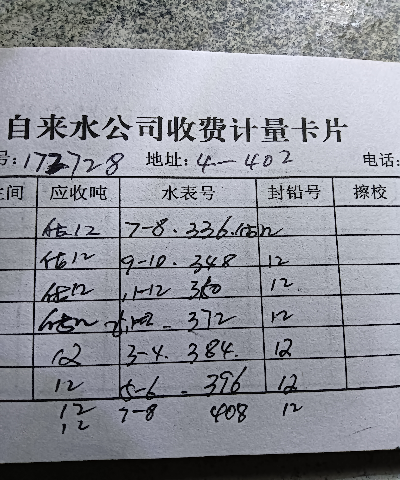 自来水公司收费计量卡片
号:172728 地址:4-402 电话:
主间 应收吨 水表号 封铅号 擦校
估12 7-8.336.估12
估12 9-10.348 12
估12 11-12 360 12
估12 1-2-372 12
12 3-4.384. 12
12 5-6-396 12
12 7-8 408 12
12